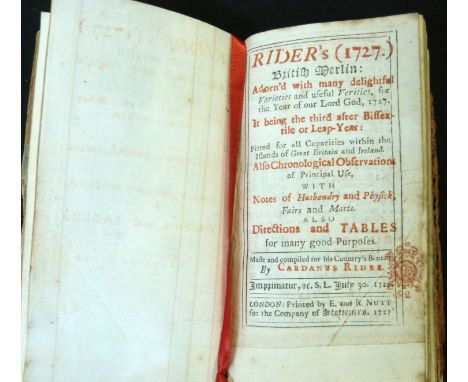 RIDER's (1727.)
British Merlin:
Adorn'd with many delightful
Verieties and useful Verities, for
the Year of our Lord God, 1727.
It being the third after Bissex-
tile or Leap-Year:
Fitted for all Capacities within the
Islands of Great Britain and Ireland.
Also Chronological Observations
of Principal Use,
WITH
Notes of Husbandry and Physick,
Fairs and Marts.
ALSO
Directions and TABLES
for many good Purposes.
Made and compiled for his Country's Benefit
By CARDANUS RIDER.
Imprimatur, &c. S. L. July 30. 1726.
LONDON: Printed by E. and R. NUTT
for the Company of Stationers. 1727